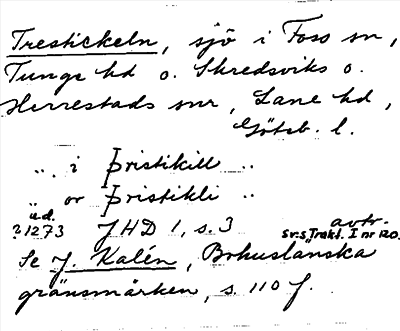 Trestickeln, sjö i Foss sn,
Tunge hd o. Skredsviks o.
Herrestads snr, Lane hd,
Göteb. l.
.. i Þristikill ..
.. or Þristikli ..
ud.
?1273 JHD 1, s. 3 avtr.
sv: s Trakt. I nr 120.
Se J. Kalén, Bohuslänska
gränsmärken, s. 110 f.